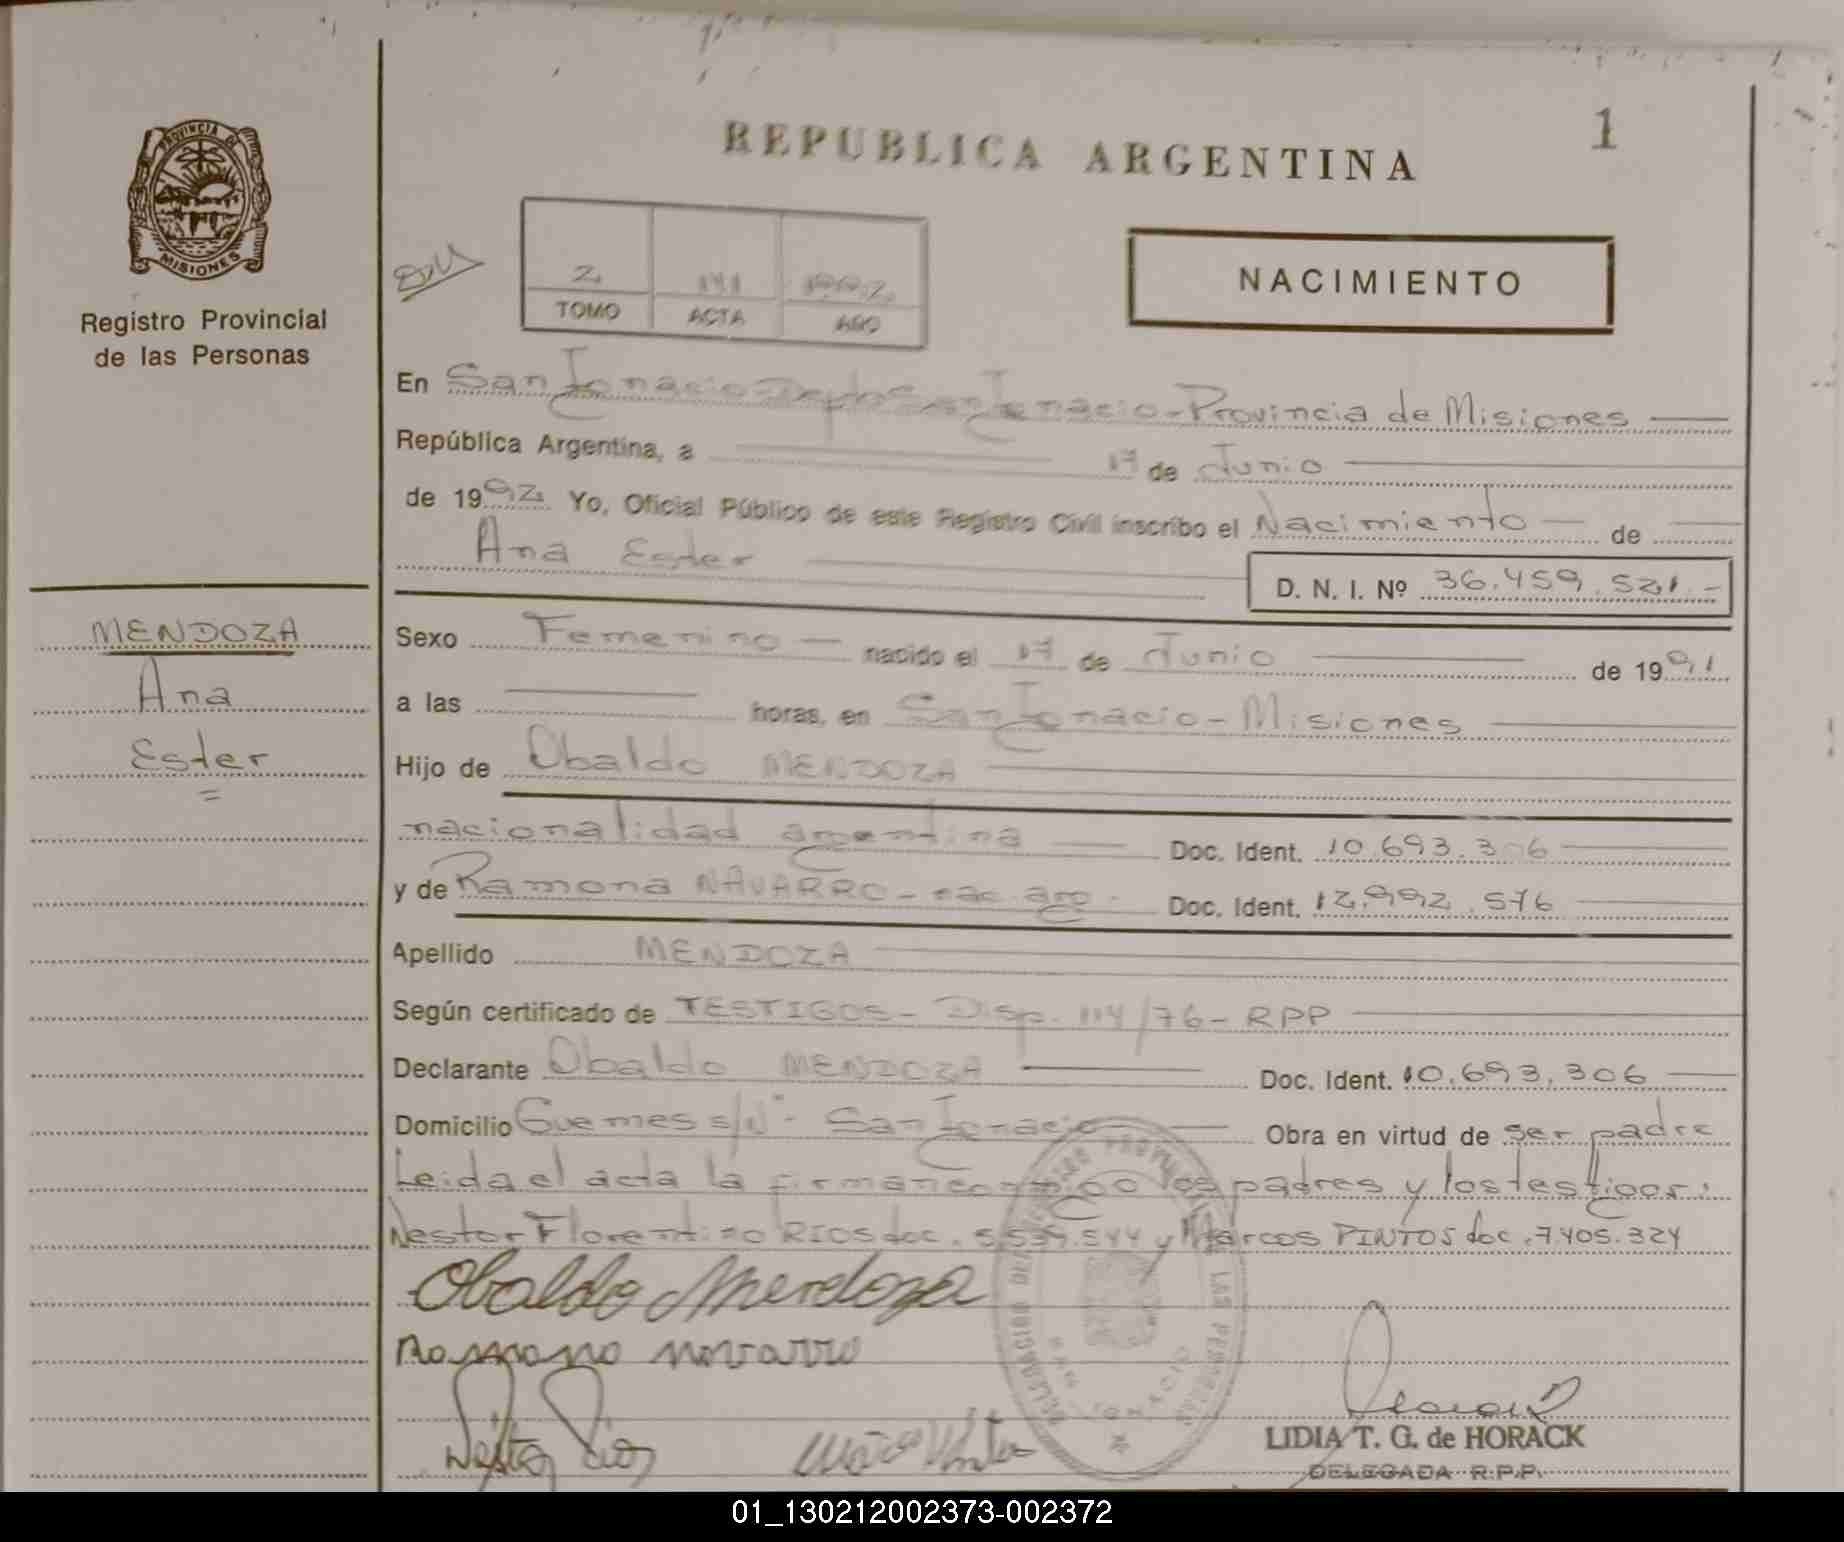 1
REPUBLICA ARGENTINA
PROVINCIA DE
MISIONES
Registro Provincial
de las Personas
2
TOMO ACTA AÑO
NACIMIENTO
En San Ignacio - Depto San Ignacio - Provincia de Misiones
República Argentina, a 17 de Junio
de 1992 Yo, Oficial Público de este Registro Civil inscribo el Nacimiento de
Ana Ester
D. N. I. Nº 36.459.521.-
MENDOZA
Ana
Ester
Sexo Femenino nacido el 17 de Junio de 1991
a las horas, en San Ignacio - Misiones
Hijo de Obaldo MENDOZA
nacionalidad argentina Doc. Ident. 10.693.306
y de Ramona NAVARRO - nac. arg. Doc. Ident. 12.992.576
Apellido MENDOZA
Según certificado de TESTIGOS - Disp. 114/76 - RPP
Declarante Obaldo MENDOZA Doc. Ident. 10.693.306
Domicilio Guemes s/Nº - San Ignacio Obra en virtud de ser padre
Leida el acta la firman conmigo los padres y los testigos:
Nestor Florentino RIOS doc. 5.539.544 y Marcos PINTOS doc. 7.405.324
Obaldo Mendoza
Ramona Navarro
Nestor Rios
LIDIA T. G. de HORACK
DELEGADA R.P.P.
01_130212002373-002372